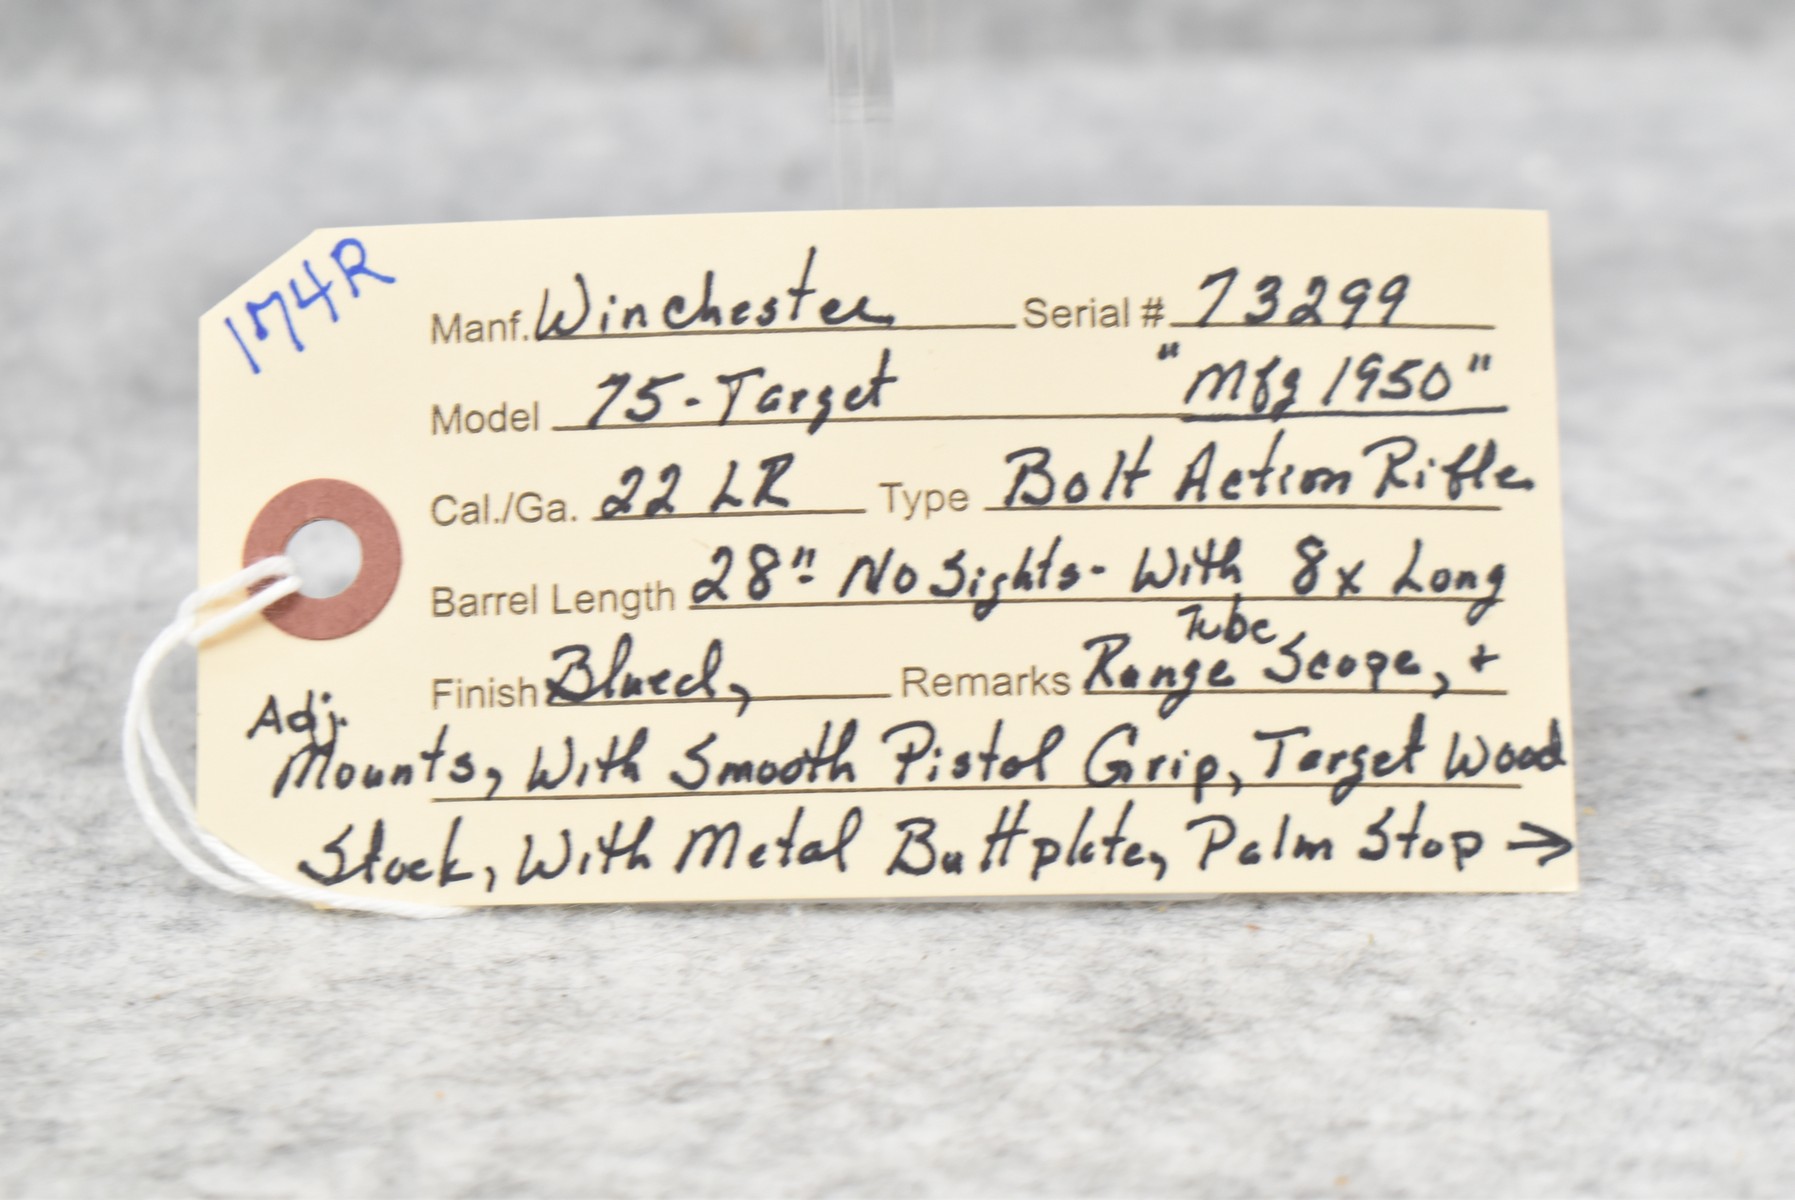 174R
Manf. Winchester Serial # 73299
Model 75-Target "Mfg 1950"
Cal./Ga. 22 LR Type Bolt Action Rifle
Barrel Length 28" No Sights - With 8x Long
Tube
Finish Blued, Remarks Range Scope, +
Adj.
Mounts, With Smooth Pistol Grip, Target Wood
Stock, With Metal Buttplate, Palm Stop →